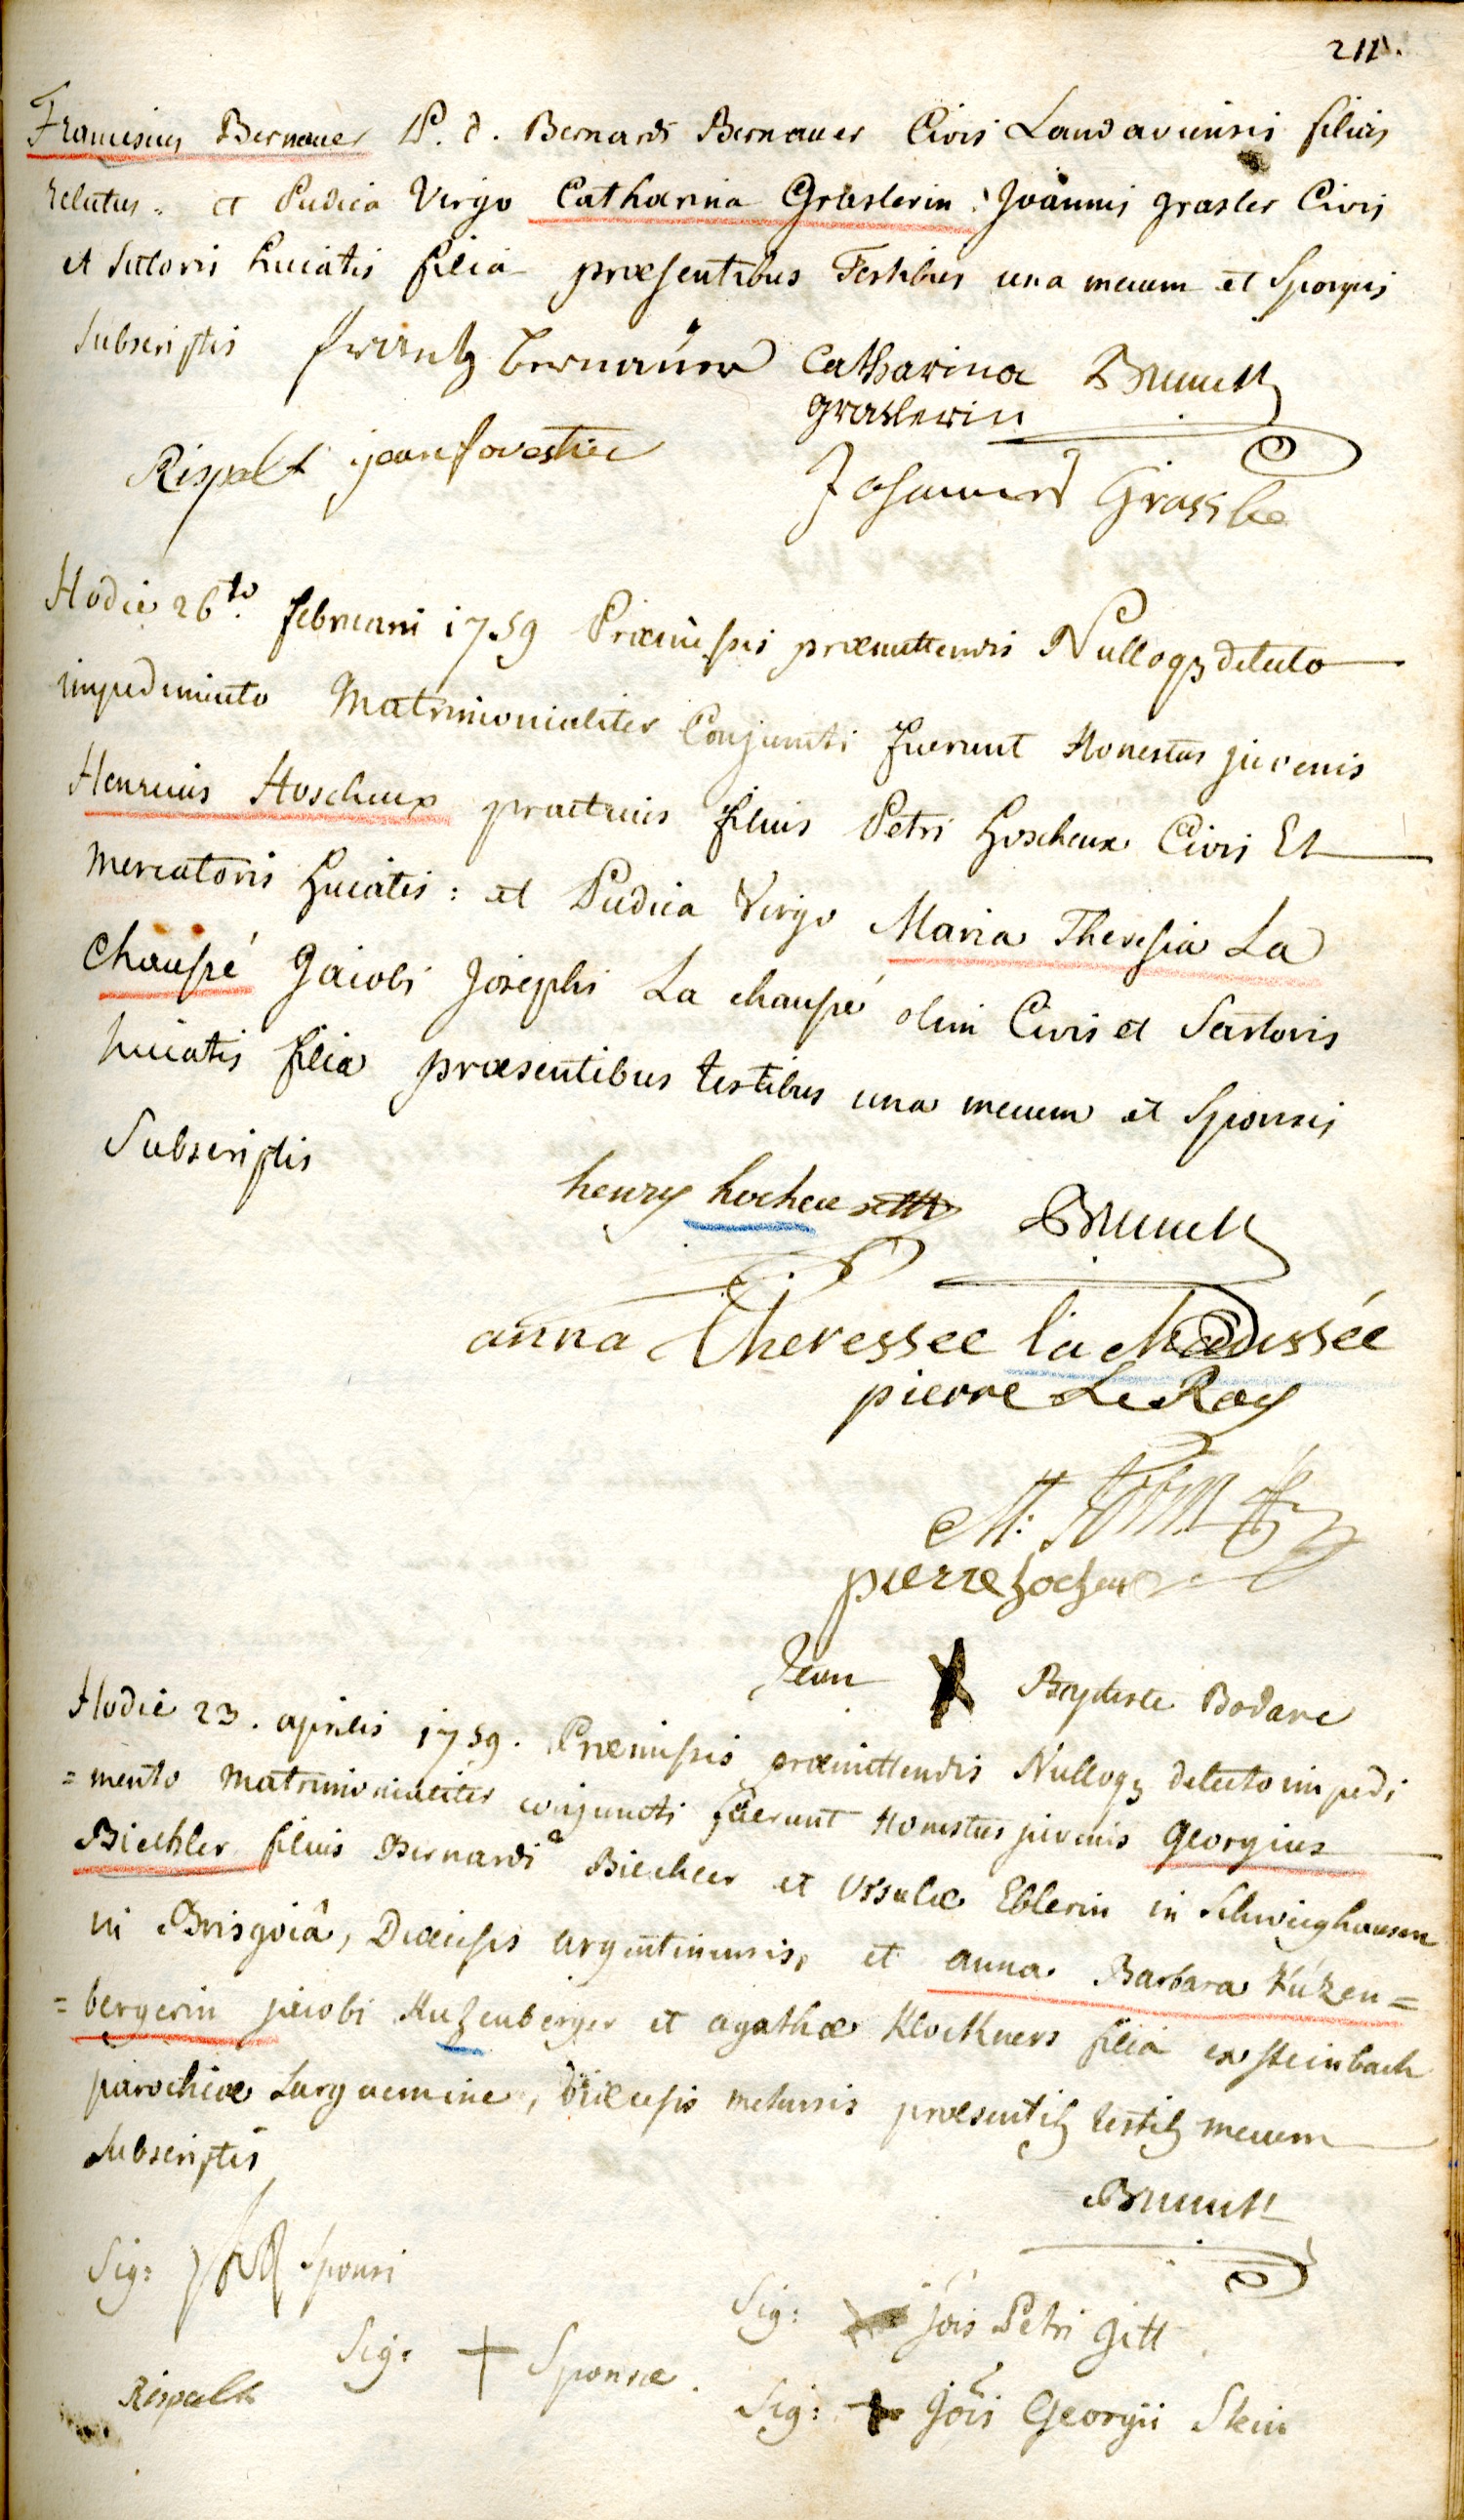 211.
Franciscus Bernauer P. d. Bernardi Bernauer Civis Landaviensis filius
relictus. et Pudica Virgo Catharina Graslerin Joannis grasler Civis
et Sutoris huiatis filia præsentibus Testibus una mecum et Sponsis
Subscriptis frantz bernauer Catharina Brunck
graslerin
Rispalt jean forestier
Johannes Grassle
Hodie 26to. februarii 1759 Præmissis præmittendis Nulloq3 detecto
impedimento Matrimonialiter Conjuncti fuerunt Honestus juvenis
Henricus Hoscheux filius Petri hoscheux Civis Et
mercatoris huiatis: et Pudica Virgo Maria Theresia La
Chaussé Jacobi Josephi La chaussé olim Civis et Sartoris
huiatis filia præsentibus testibus una mecum et Sponsis
Subscriptis
henry hocheux Brunck
anna Theressee la chaussée
pierre Le Roy
M:
pierre hocheux
Jean Baptiste Bodare
Hodie 23. aprilis 1759. Præmissis præmittendis Nulloq3 detecto impedi
=mento matrimonialiter conjuncti fuerunt Honestus juvenis Georgius
Biechler filius Bernardi Biechler et Ursulæ Eblerin in Schweighausen
in Brisgoiâ, Diæcesis argentinensis, et anna Barbara Kúzen=
=bergerin jacobi Kuzenberger et agathæ Klockners filia ex steinbach
parochiæ Sarguemine, diæcesis metensis præsentib3 testib3 mecum
Subscriptis
Brunck
Sig: Sponsi
Sig: jois Petri gitt
Sig: + Sponsæ.
Rispalt
Sig: + jois Georgii Stein